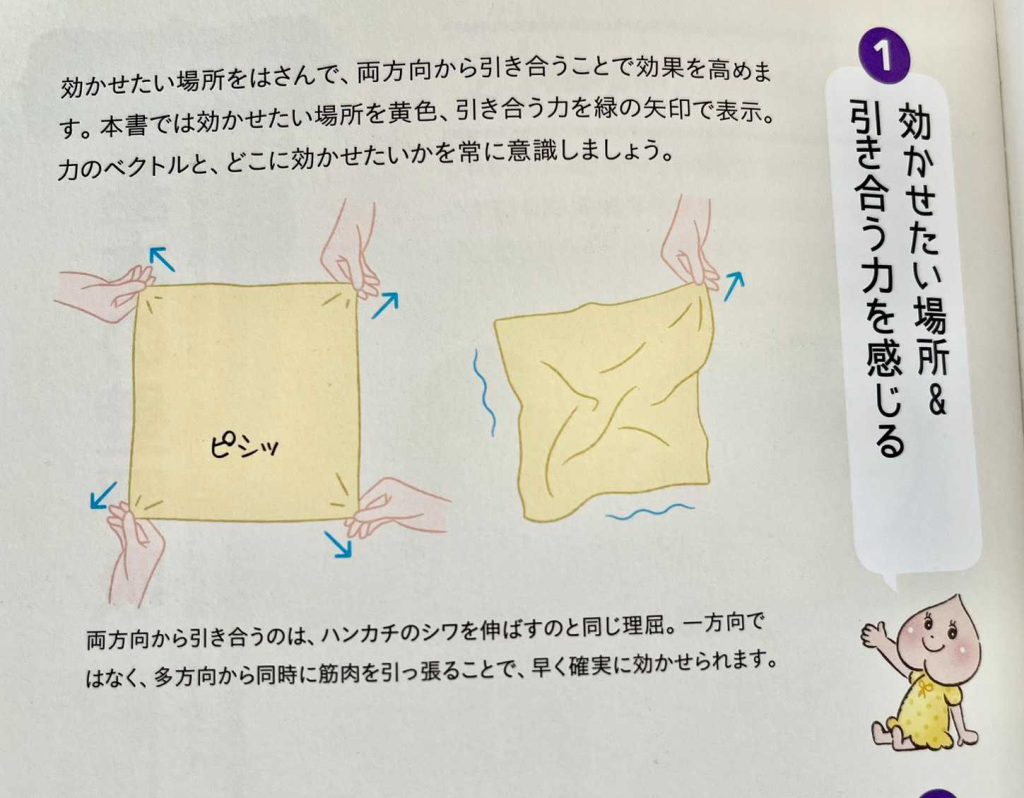 1
効かせたい場所&
引き合う力を感じる
効かせたい場所をはさんで、両方向から引き合うことで効果を高めま
す。本書では効かせたい場所を黄色、引き合う力を緑の矢印で表示。
力のベクトルと、どこに効かせたいかを常に意識しましょう。
ピシッ
両方向から引き合うのは、ハンカチのシワを伸ばすのと同じ理屈。一方向で
はなく、多方向から同時に筋肉を引っ張ることで、早く確実に効かせられます。